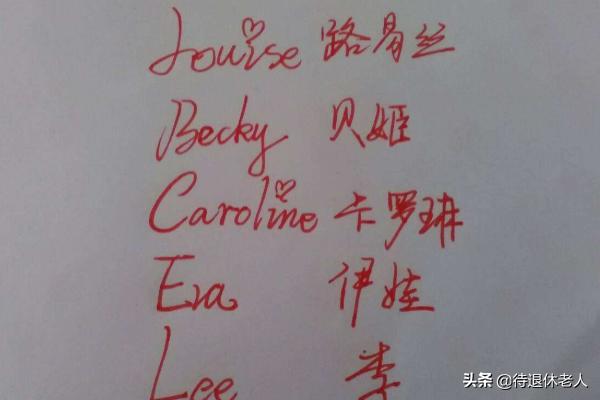 Louise 路易丝
Becky 贝姬
Caroline 卡罗琳
Eva 伊娃
Lee 李
头条 @待退休老人